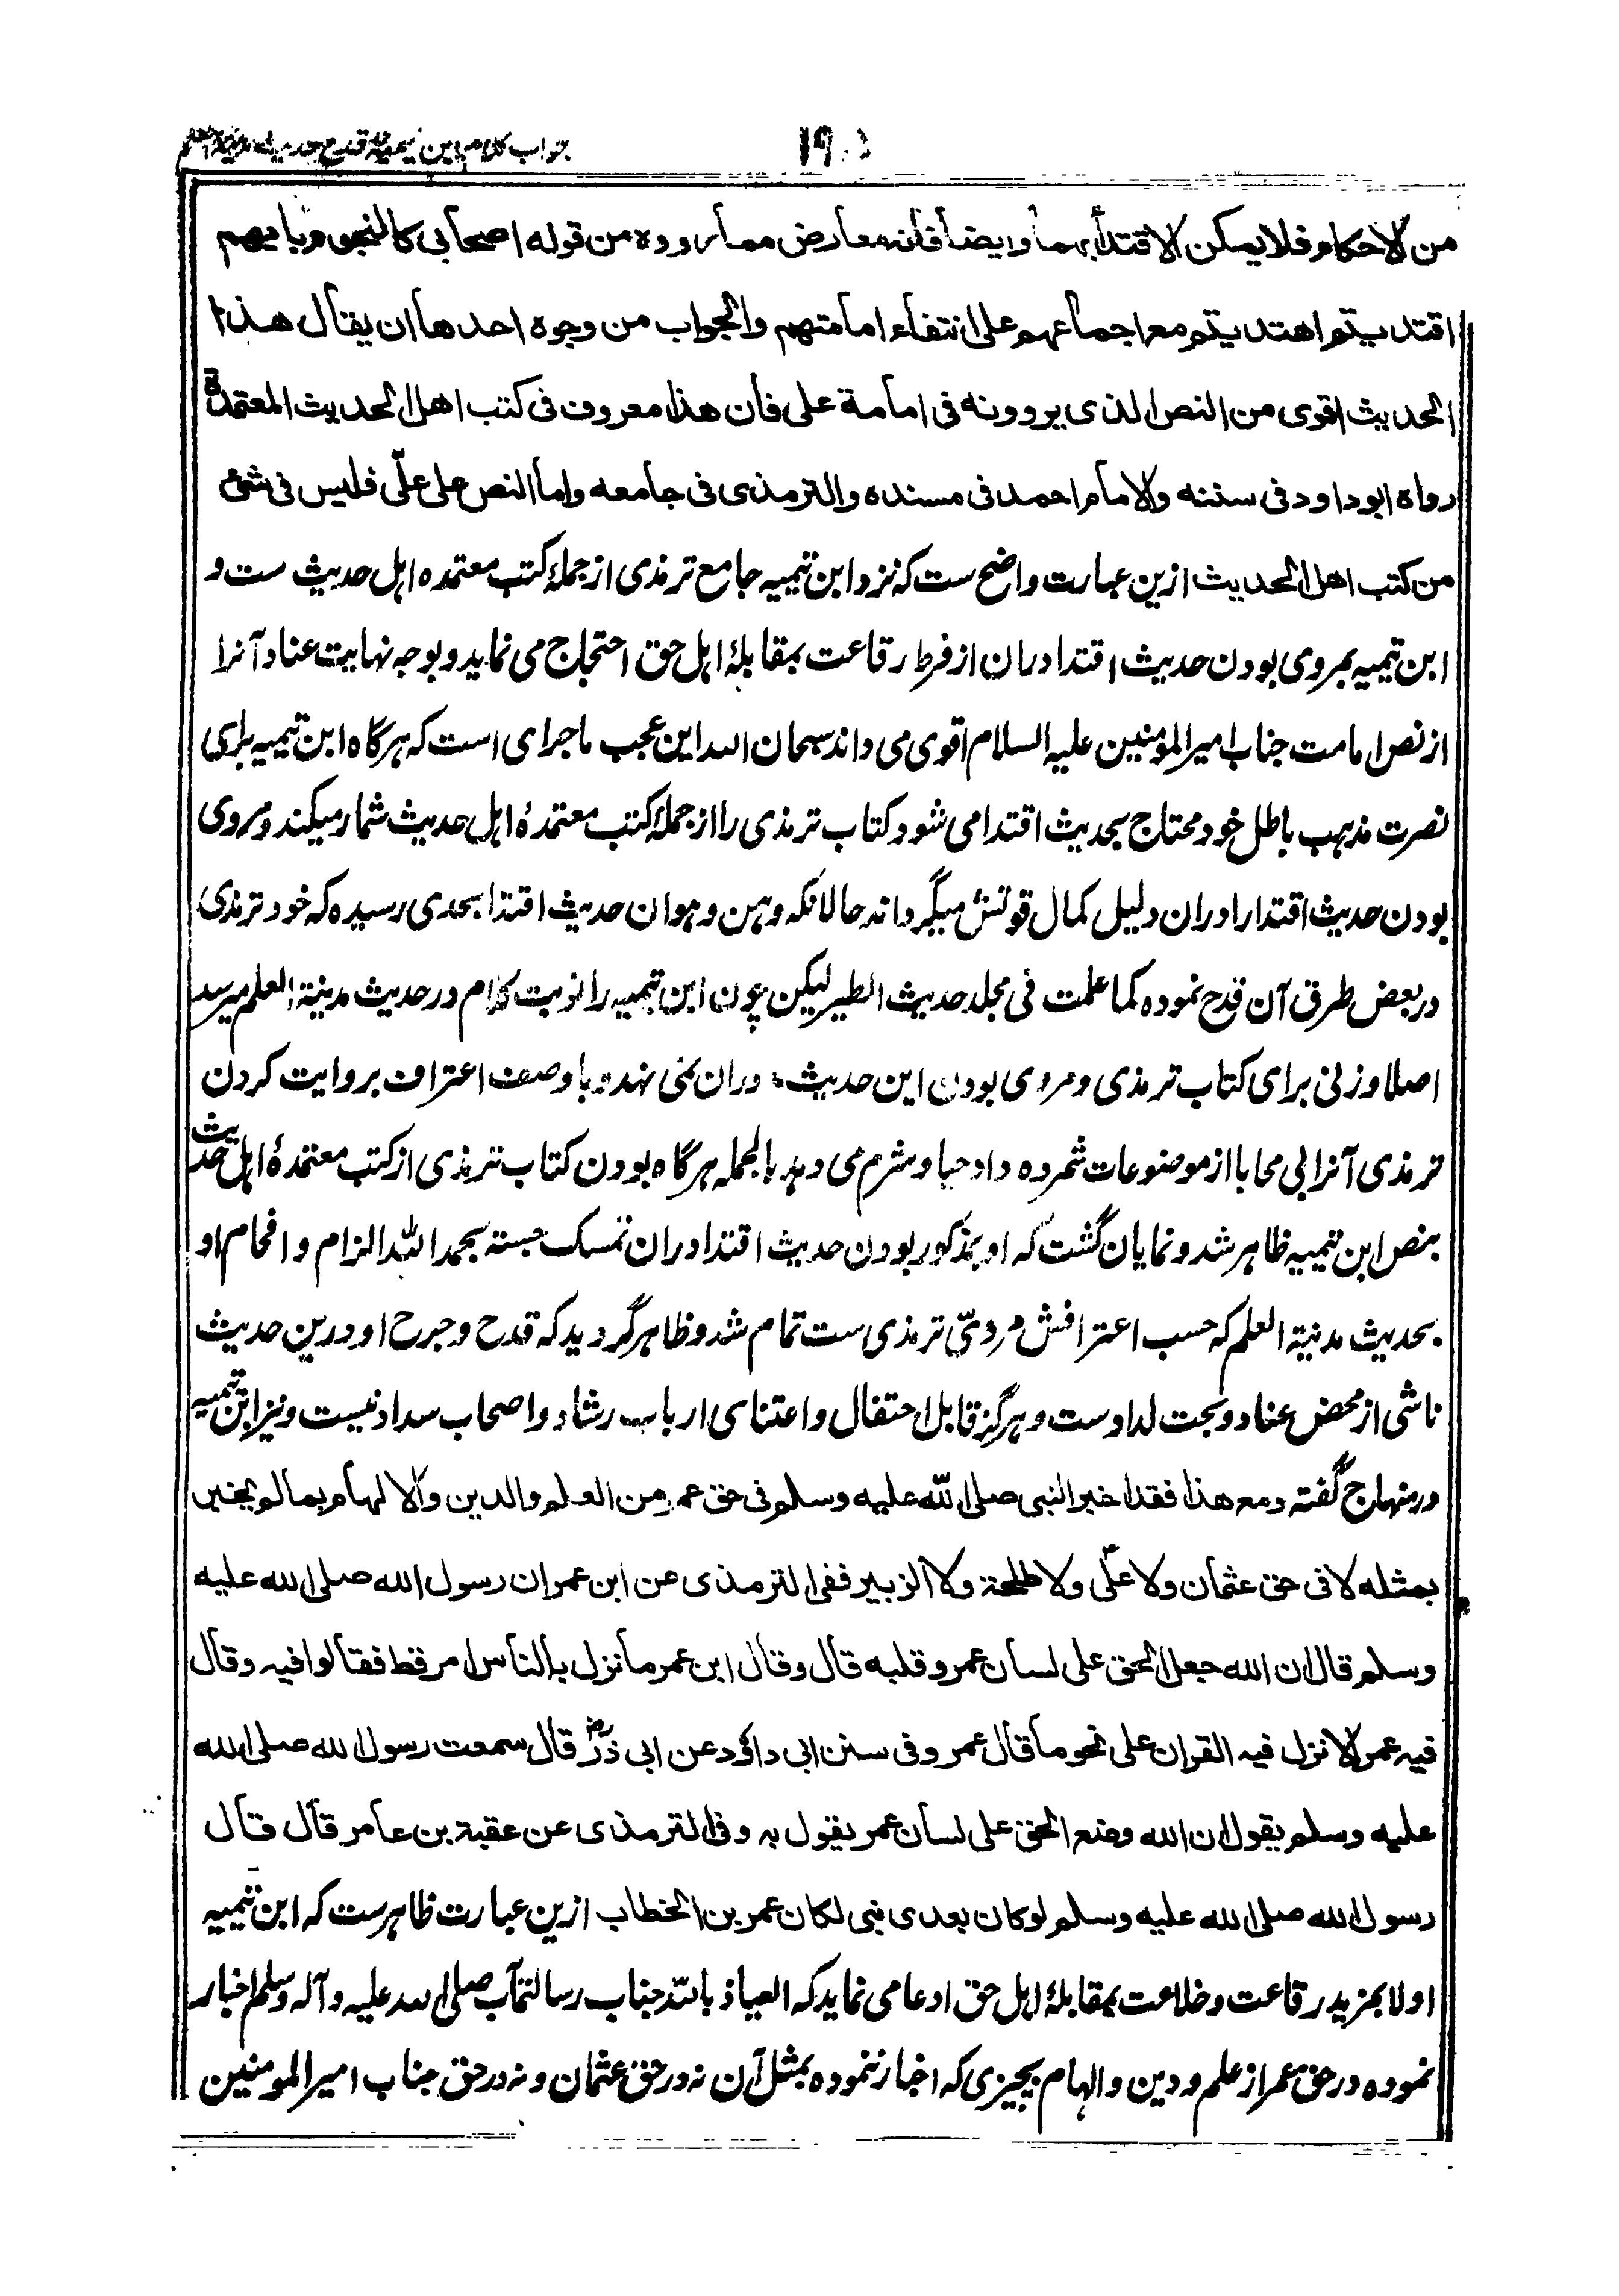 جواب کلام ابن تیمیه در قدح حدیث مدینة العلم
من الاحکام فلا یمکن الاقتدأ بهما وایضاً فانه معارض مما رووه من قوله اصحابی کالنجوم بایهم
اقتدیتم اهتدیتم مع اجماعهم علی انتفاء امامتهم والجواب من وجوه احدها ان یقال هذا
الحدیث اقوی من النص الذی یروونه فی امامة علی فان هذا معروف فی کتب اهل الحدیث المعتمدة
رواه ابو داود فی سننه والامام احمد فی مسنده والترمذی فی جامعه واما النص علی علیّ فلیس فی شئ
من کتب اهل الحدیث ازین عبارت واضح ست که نزد ابن تیمیه جامع ترمذی از جملهٔ کتب معتمده اهل حدیث ست و
ابن تیمیه بمروی بودن حدیث اقتدا دران از فرط رقاعت بمقابلهٔ اهل حق احتجاج می نماید و بوجه نهایت عناد آنرا
از نص امامت جناب امیر المومنین علیه السلام اقوی می داند سبحان الله این عجب ماجرای است که هرگاه ابن تیمیه برای
نصرت مذهب باطل خود محتاج بحدیث اقتدا می شود کتاب ترمذی را از جملهٔ کتب معتمدهٔ اهل حدیث شمار میکند و مروی
بودن حدیث اقتدا را دران دلیل کمال قوتش میگرداند حالانکه وهن و هوان حدیث اقتدا بحدی رسیده که خود ترمذی
در بعض طرق آن قدح نموده کما علمت فی مجلد حدیث الطیر لیکن چون ابن تیمیه را نوبت کلام در حدیث مدینة العلم میرسد
اصلا وزنی برای کتاب ترمذی و مروی بودن این حدیث دران نمی نهد و با وصف اعتراف بروایت کردن
ترمذی آنرا بی محابا از موضوعات شمرده داد حیا و شرم می دهد بالجمله هرگاه بودن کتاب ترمذی از کتب معتمدهٔ اهل حدیث
بنص ابن تیمیه ظاهر شد و نمایان گشت که او بمذکور بودن حدیث اقتدا دران تمسک جسته بحمد الله الزام و افحام او
بحدیث مدینة العلم که حسب اعترافش مرویّ ترمذی ست تمام شد و ظاهر گردید که قدح و جرح او درین حدیث
ناشی از محض عناد و بحت لداد ست و هرگز قابل احتفال و اعتنای ارباب رشاد و اصحاب سداد نیست و نیز ابن تیمیه
در منهاج گفته ومع هذا فقد اخبر النبی صلی الله علیه وسلم فی حق عمر من العلم والدین والالهام بما لم یخبر
بمثله لا فی حق عثمان ولا علّی ولا طلحة ولا الزبیر ففی الترمذی عن ابن عمر ان رسول الله صلی الله علیه
وسلم قال ان الله جعل الحق علی لسان عمر وقلبه قال وقال ابن عمر ما نزل بالناس امر قط فقالوا فیه وقال
فیه عمر الا نزل فیه القران علی نحو ما قال عمر وفی سنن ابی داؤد عن ابی ذرؓ قال سمعت رسول الله صلی الله
علیه وسلم یقول ان الله وضع الحق علی لسان عمر یقول به وفی الترمذی عن عقبة بن عامر قال قال
رسول الله صلی الله علیه وسلم لو کان بعدی نبی لکان عمر بن الخطاب ازین عبارت ظاهرست که ابن تیمیه
اولا بمزید رقاعت و خلاعت بمقابلهٔ اهل حق ادعا می نماید که العیاذ بالله جناب رسالتمآب صلی الله علیه وآله وسلم اخبار
نموده در حق عمر از علم و دین و الهام بچیزی که اخبار ننموده بمثل آن نه در حق عثمان و نه در حق جناب امیر المومنین